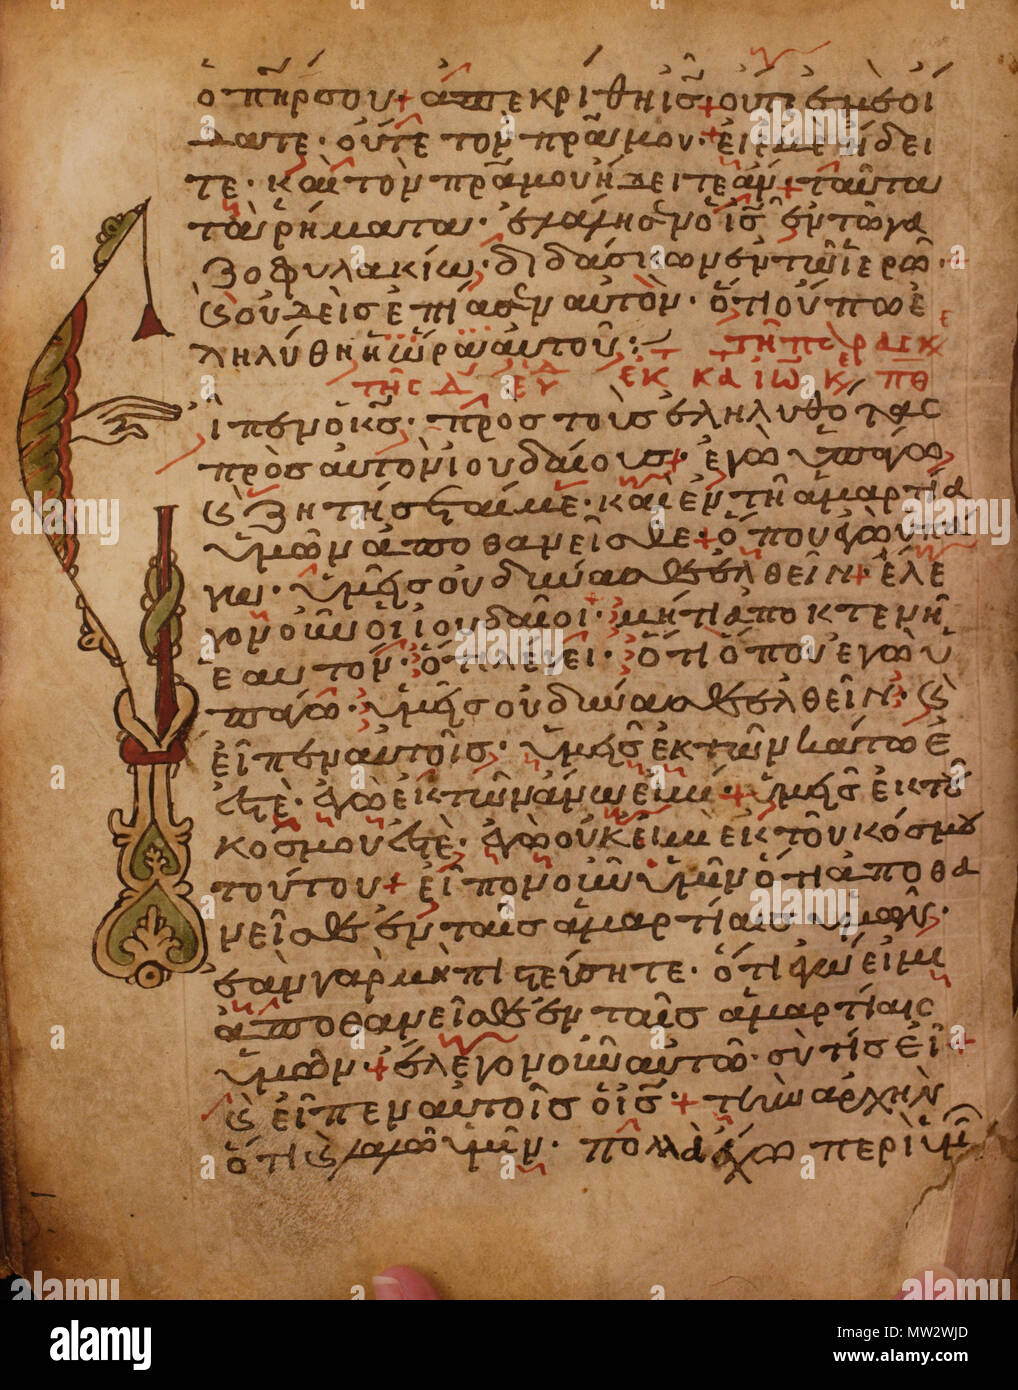 ὁ π̅η̅ρ σου + ἀπεκρίθη ὁ ι̅ς̅ + οὔτε ἐμὲ οἴ
δατε · οὔτε τὸν π̅ρ̅α μου · εἰ ἐμὲ ἤδει
τε · καὶ τὸν π̅ρ̅α μου ἤδειτε ἄν + ταῦτα
τὰ ῥήματα · ἐλάλησεν ὁ ι̅ς̅ ἐν τῷ γα
ζοφυλακίω · διδάσκων ἐν τῷ ἱερῷ ·
ϗ οὐδεὶς ἐπίασεν αὐτὸν · ὅτι οὔπω ἐ
ληλύθη ἡ ὥρα αὐτοῦ :
τῇ παρασκ
τῆς Δ ΕΥ ἐκ κατ ἰω κε πθ
ἶπεν ὁ κ̅ς̅ · πρὸς τοὺς ἐληλυθότας
πρὸς αὐτὸν ἰουδαίους + ἐγὼ ὑπάγω
ϗ ζητήσεταί με · καὶ ἐν τῇ ἁμαρτία
ὑμῶν ἀποθανεῖσθε + ὅπου ἐγὼ ὑπά
γω · ὑμεῖς οὐ δύνασθε ἐλθεῖν + ἔλε
γον οὖν οἱ ἰουδαῖοι · μήτι ἀποκτενῆ
ἑαυτόν · ὅτι λέγει · ὅτι ὅπου ἐγὼ ὑ
πάγω · ὑμεῖς οὐ δύνασθε ἐλθεῖν · ϗ
εἶπεν αὐτοῖς · ὑμεῖς ἐκ τῶν κάτω ἐ
στὲ · ἐγὼ ἐκ τῶν ἄνω εἰμί + ὑμεῖς ἐκ τοῦ
κόσμου ἐστὲ · ἐγὼ οὐκ εἰμὶ ἐκ τοῦ κόσμου
τούτου + εἶπον οὖν ὑμῖν ὅτι ἀποθα
νεῖσθε ἐν ταῖς ἁμαρτίαις ὑμῶν ·
ἐὰν γὰρ μὴ πιστεύσητε · ὅτι ἐγώ εἰμι
ἀποθανεῖσθε ἐν ταῖς ἁμαρτίαις
ὑμῶν + ἔλεγον οὖν αὐτῷ · σὺ τίς εἶ +
ϗ εἶπεν αὐτοῖς ὁ ι̅ς̅ + τὴν ἀρχὴν
ὅτι ϗ λαλῶ ὑμῖν · πολλὰ ἔχω περὶ ὑμ
a alamy stock photo
Image ID: MW2WJD
www.alamy.com